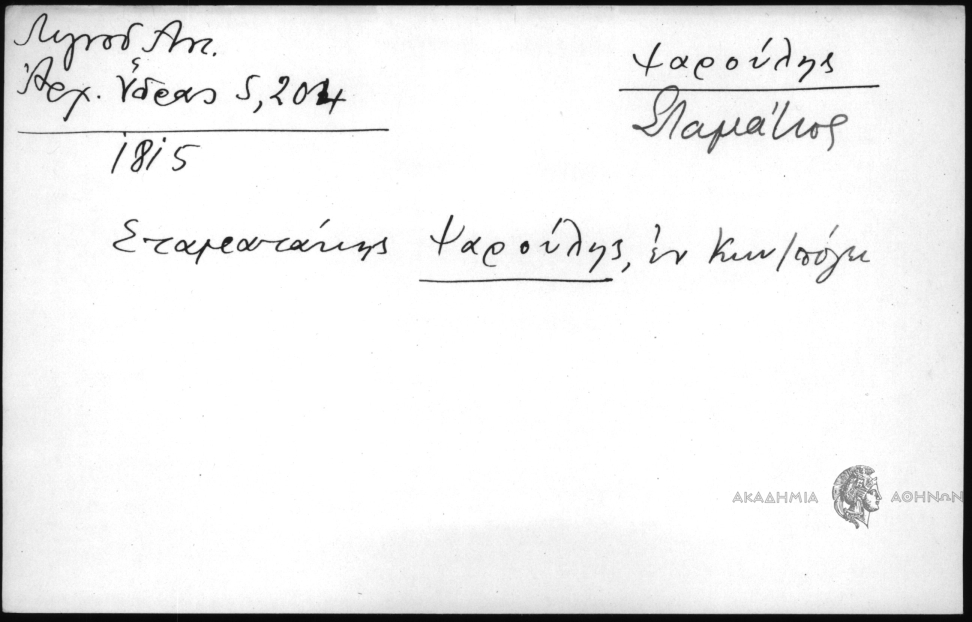 Λιγνοῦ Ἀντ.
Ἀρχ. Ὕδρας 5, 204
1815
Ψαρούλης
Σταμάτιος
Σταματάκης Ψαρούλης, ἐν Κων/πόλει
ΑΚΑΔΗΜΙΑ ΑΘΗΝΩΝ